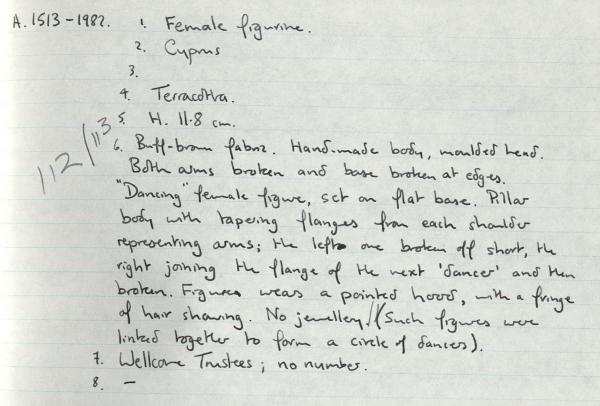 A.1513-1982. 1. Female figurine.
2. Cyprus
3.
4. Terracotta.
5. H. 11.8 cm.
112/113
6. Buff-brown fabric. Hand-made body, moulded head.
Both arms broken and base broken at edges.
"Dancing" female figure, set on flat base. Pillar
body with tapering flanges from each shoulder
representing arms; the left one broken off short, the
right joining the flange of the next 'dancer' and then
broken. Figure wears a pointed hood, with a fringe
of hair showing. No jewellery. (Such figures were
linked together to form a circle of dancers).
7. Wellcome Trustees; no number.
8. —